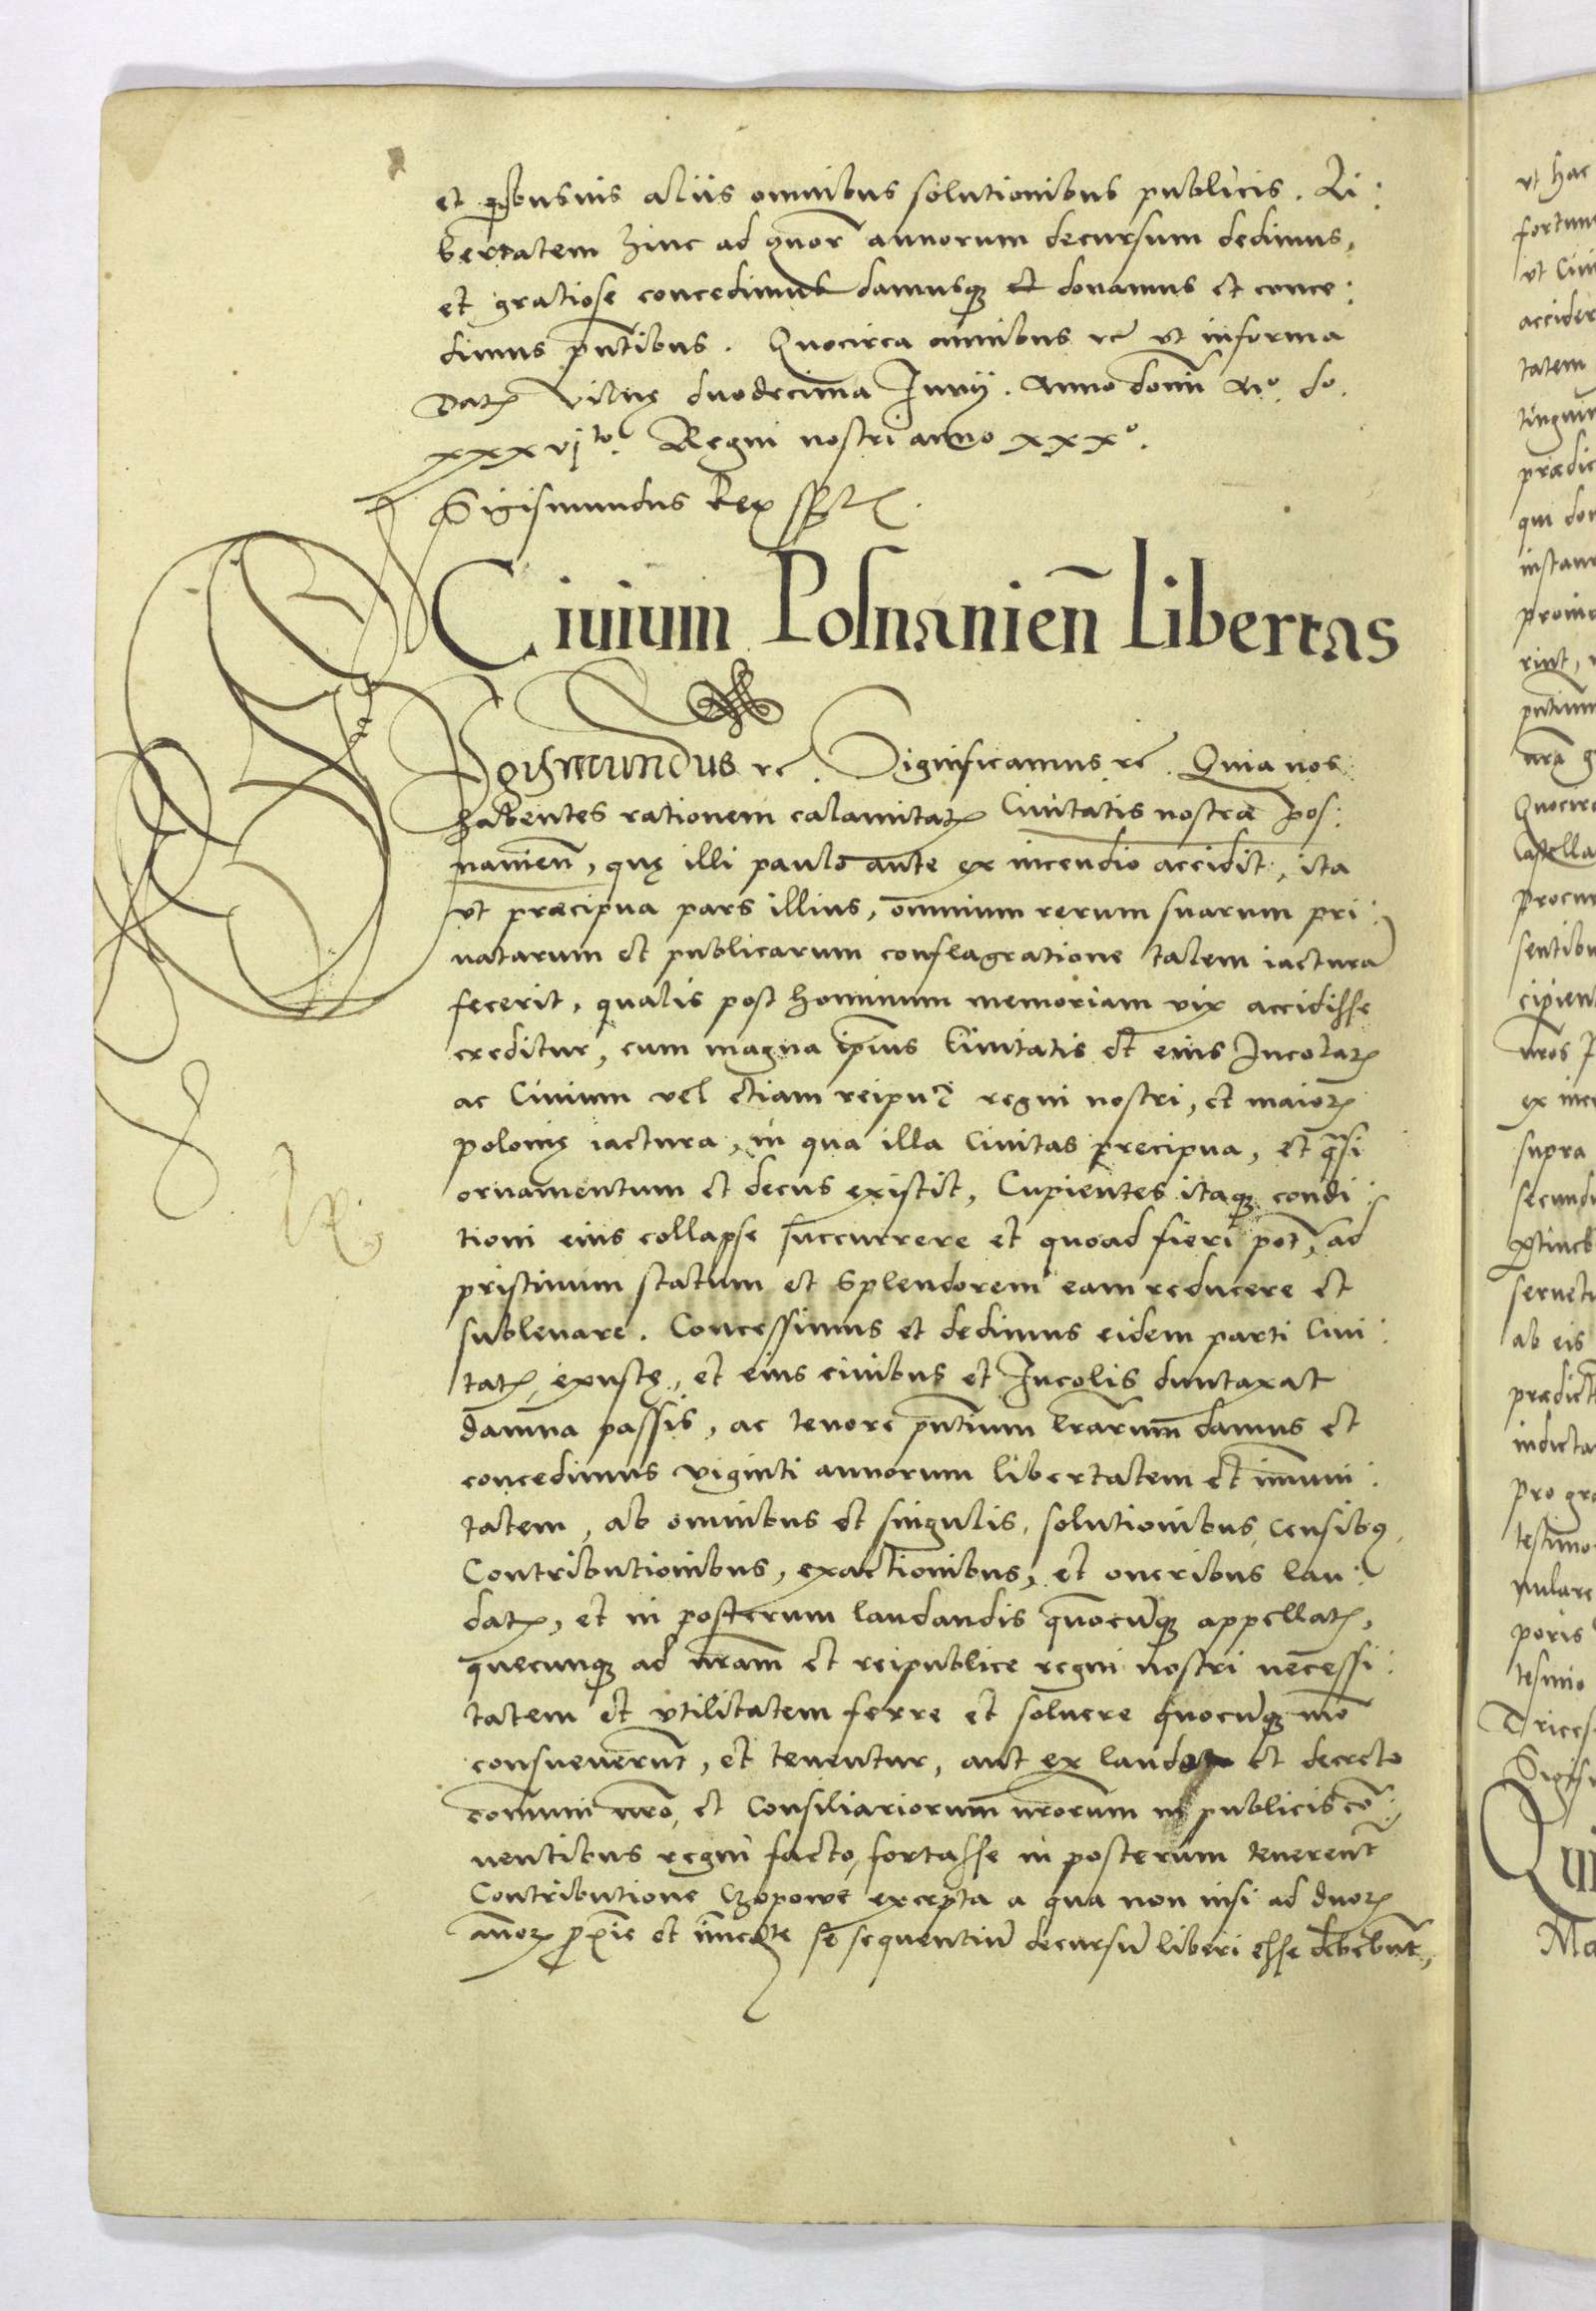 et quibusuis aliis omnibus solutionibus publicis. Li:
bertatem hinc ad quor̄ annorum decursum dedimus,
et gratiose concedimus damusq̨ et donamus et conce:
dimus pn̄tibus. Quocirca omnibus rc̄ vt in forma
Datꝭ Vilnę duodecima Junij. Anno dom̄ Mo. do.
xxxvjto. Regni nostri anno xxxo.
Sigismundus Rex sst
Ciuium Posnanien̄ Libertas
Sigismundus rc̄. Significamus rc̄. Quia nos
habentes rationem calamitatꝭ Ciuitatis nostræ Pos:
nanien̄, quę illi paulo ante ex incendio accidit, ita
vt præcipua pars illius, omnium rerum suarum pri:
uatarum et publicarum conflagratione talem iacturā
fecerit, qualis post hominum memoriam vix accidisse
creditur, cum magna ip̄ius Ciuitatis et eius Incolarꝝ
ac Ciuium vel etiam reipu᷑ regni nostri, et maiorꝭ
polonię iactura, in qua illa Ciuitas precipua, et qͣsi
ornamentum et decus existit, Cupientes itaq̨ condi:
tioni eius collapse succurrere et quoad fieri pot̄, ad
pristinum statum et splendorem eam reducere et
subleuare. Concessimus et dedimus eidem parti Ciui:
tatꝭ exustę, et eius ciuibus et Incolis duntaxat
damna passis, ac tenore pn̄tium lr̄arum damus et
concedimus viginti annorum libertatem et im̄uni:
tatem, ab omnibus et singulis, solutionibus, censibꝯ,
Contributionibus, exactionibus, et oneribus lau:
datꝭ, et in posterum laudandis quocūq̨ appellatꝭ,
quecunq̨ ad nr̄am et reipublice regni nostri necessi:
tatem et vtilitatem ferre et soluere quocūq̨ mō
consueuerunt, et tenentur, aut ex laudo et decreto
com̄uni nr̄o, et Consiliariorum nr̄orum in publicis cō:
uentibus regni facto, fortasse in posterum tenerent̄
Contributione Czopowe excepta a qua non nisi ad duorꝝ
an̄orꝝ prox̄ie et im̄ed̄te se sequentiū decursū liberi esse debebunt,